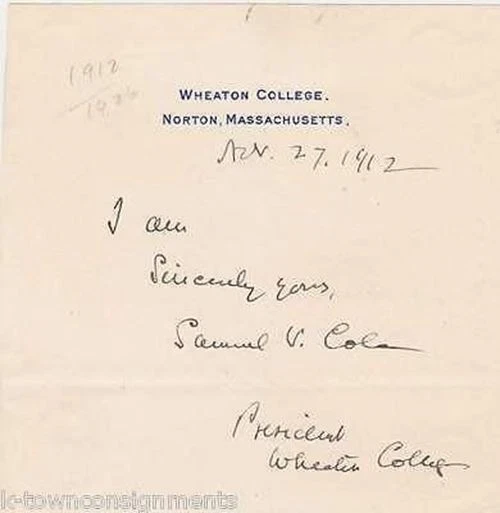 1912
1926
WHEATON COLLEGE.
NORTON, MASSACHUSETTS.
Nov. 27, 1912
I am
Sincerely yours,
Samuel V. Cole
President
Wheaton College
k-townconsignments